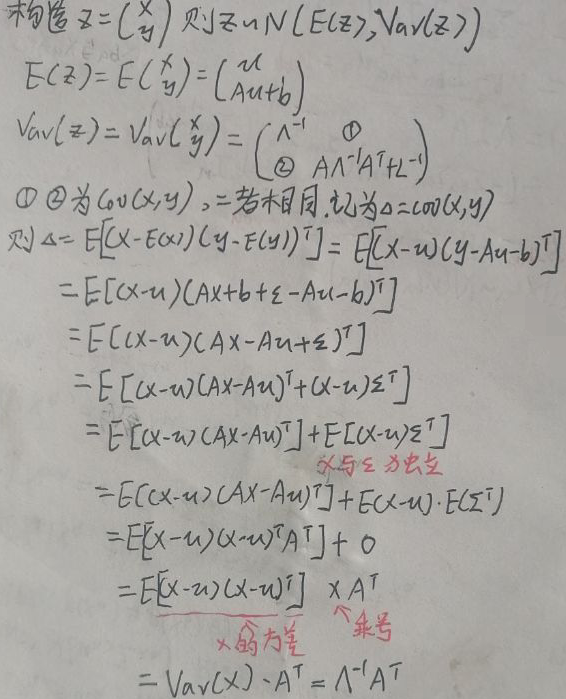 构造 z = (x y) 则 z ~ N(E(z), Var(z))
E(z) = E(x y) = (u Au+b)
Var(z) = Var(x y) = (Λ⁻¹ ① ② AΛ⁻¹Aᵀ+L⁻¹)
①②为Cov(x,y),二者相同.记为Δ=cov(x,y)
则Δ= E[(x-E(x))(y-E(y))ᵀ] = E[(x-u)(y-Au-b)ᵀ]
= E[(x-u)(Ax+b+ε-Au-b)ᵀ]
= E[(x-u)(Ax-Au+ε)ᵀ]
= E[(x-u)(Ax-Au)ᵀ+(x-u)εᵀ]
= E[(x-u)(Ax-Au)ᵀ]+E[(x-u)εᵀ]
x与ε为独立
= E[(x-u)(Ax-Au)ᵀ]+E(x-u)·E(εᵀ)
= E[(x-u)(x-u)ᵀAᵀ]+0
= E[(x-u)(x-u)ᵀ] × Aᵀ
x的方差 乘号
= Var(x)·Aᵀ = Λ⁻¹Aᵀ